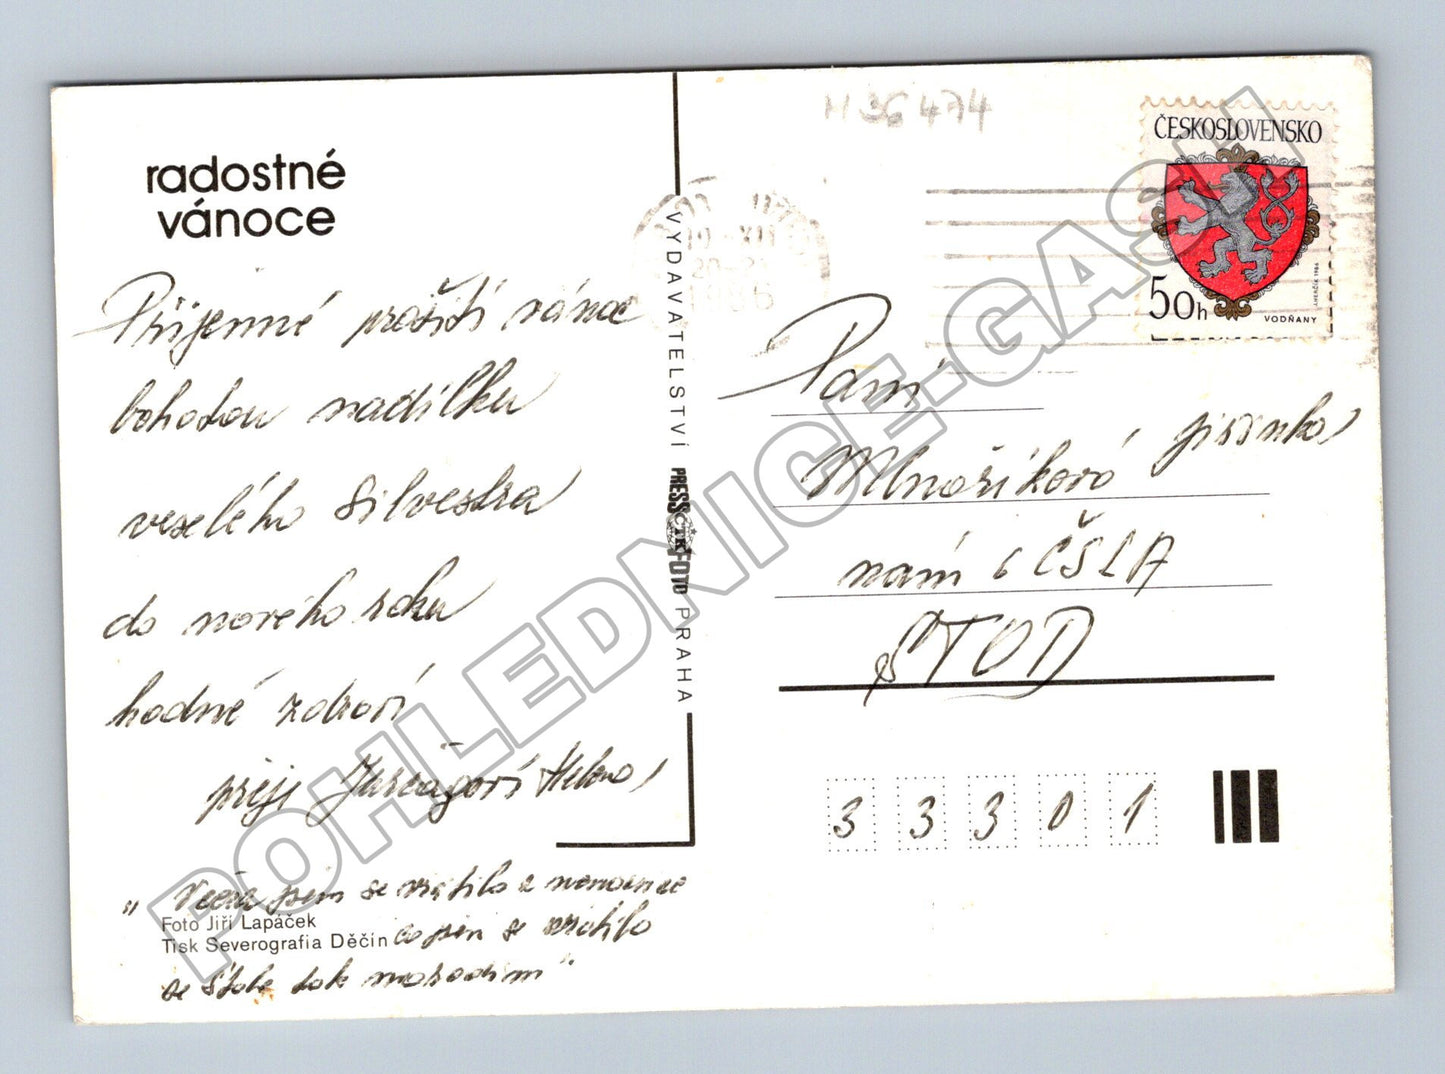 radostné
vánoce
Příjemné prožití vánoc
bohatou nadílku
veselého Silvestra
do nového roku
hodně zdraví
přeje Helena
" Včera jsem se vrátila z nemocnice
co jsem se vrátila
ze Štole tak marodím"
Foto Jiří Lapáček
Tisk Severografia Děčín
VYDAVATELSTVÍ PRESSFOTO PRAHA
ČTK
M 36 474
19. XII
20-21
1986
ČESKOSLOVENSKO
50h
VODŇANY
1986
Paní
Mlnaříková Jiřinka
nám ČSLA
STOD
3 3 3 0 1
POHLEDNICE-GASH